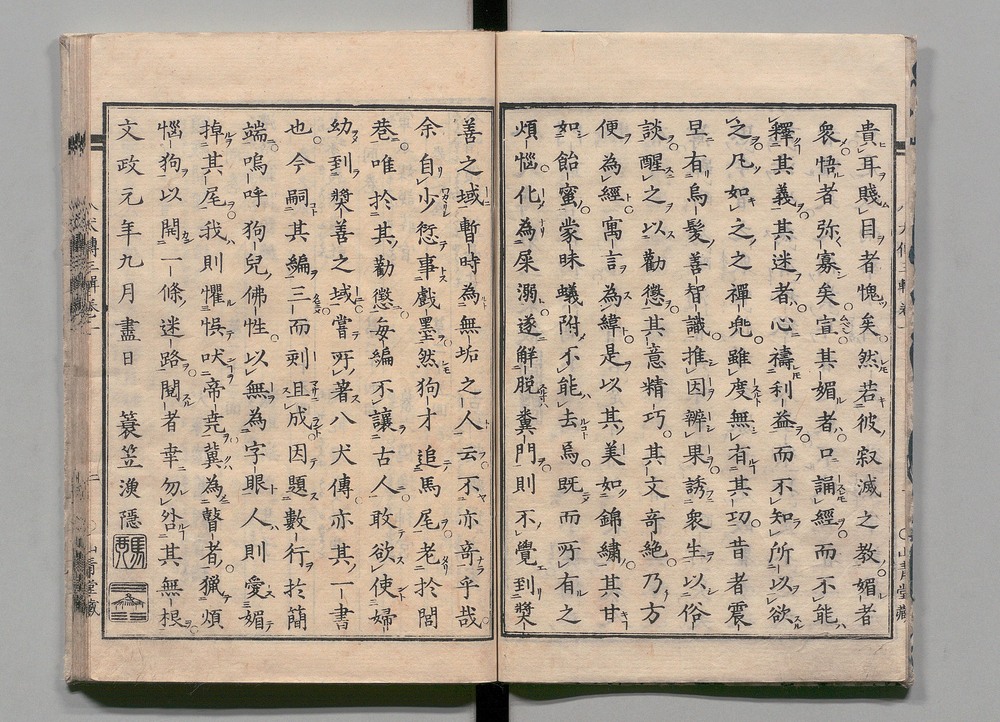 貴耳賤目者愧矣然若彼寂滅之教媚者
衆悟者弥寡矣宣其媚者口誦經而不能
釋其義其迷者心禱利益而不知所以欲
之凡如之之禪兠雖度無有其功昔者震
旦有烏髮善智識推因辨果誘衆生以俗
談醒之以勸懲其意精巧其文奇絶乃方
便為經寓言為緯是以其美如錦繡其甘
如飴蜜蒙昧蟻附不能去焉既而所有之
煩惱化為屎溺遂觧脱糞門則不覺到奬
善之域暫時為無垢之人云不亦奇乎哉
余自少愆事戲墨然狗才追馬尾老於閭
巷唯於其勸懲毎編不讓古人敢欲使婦
幼到奬善之域嘗所著八犬傳亦其一書
也今嗣其編三而刻且成因題數行於簡
端嗚呼狗兒佛性以無為字眼人則愛媚
掉其尾我則懼悞吠帝堯冀為瞽者獵煩
惱狗以開一條迷路閲者幸勿咎其無根
文政元年九月盡日　蓑笠漁隠
山青堂藏